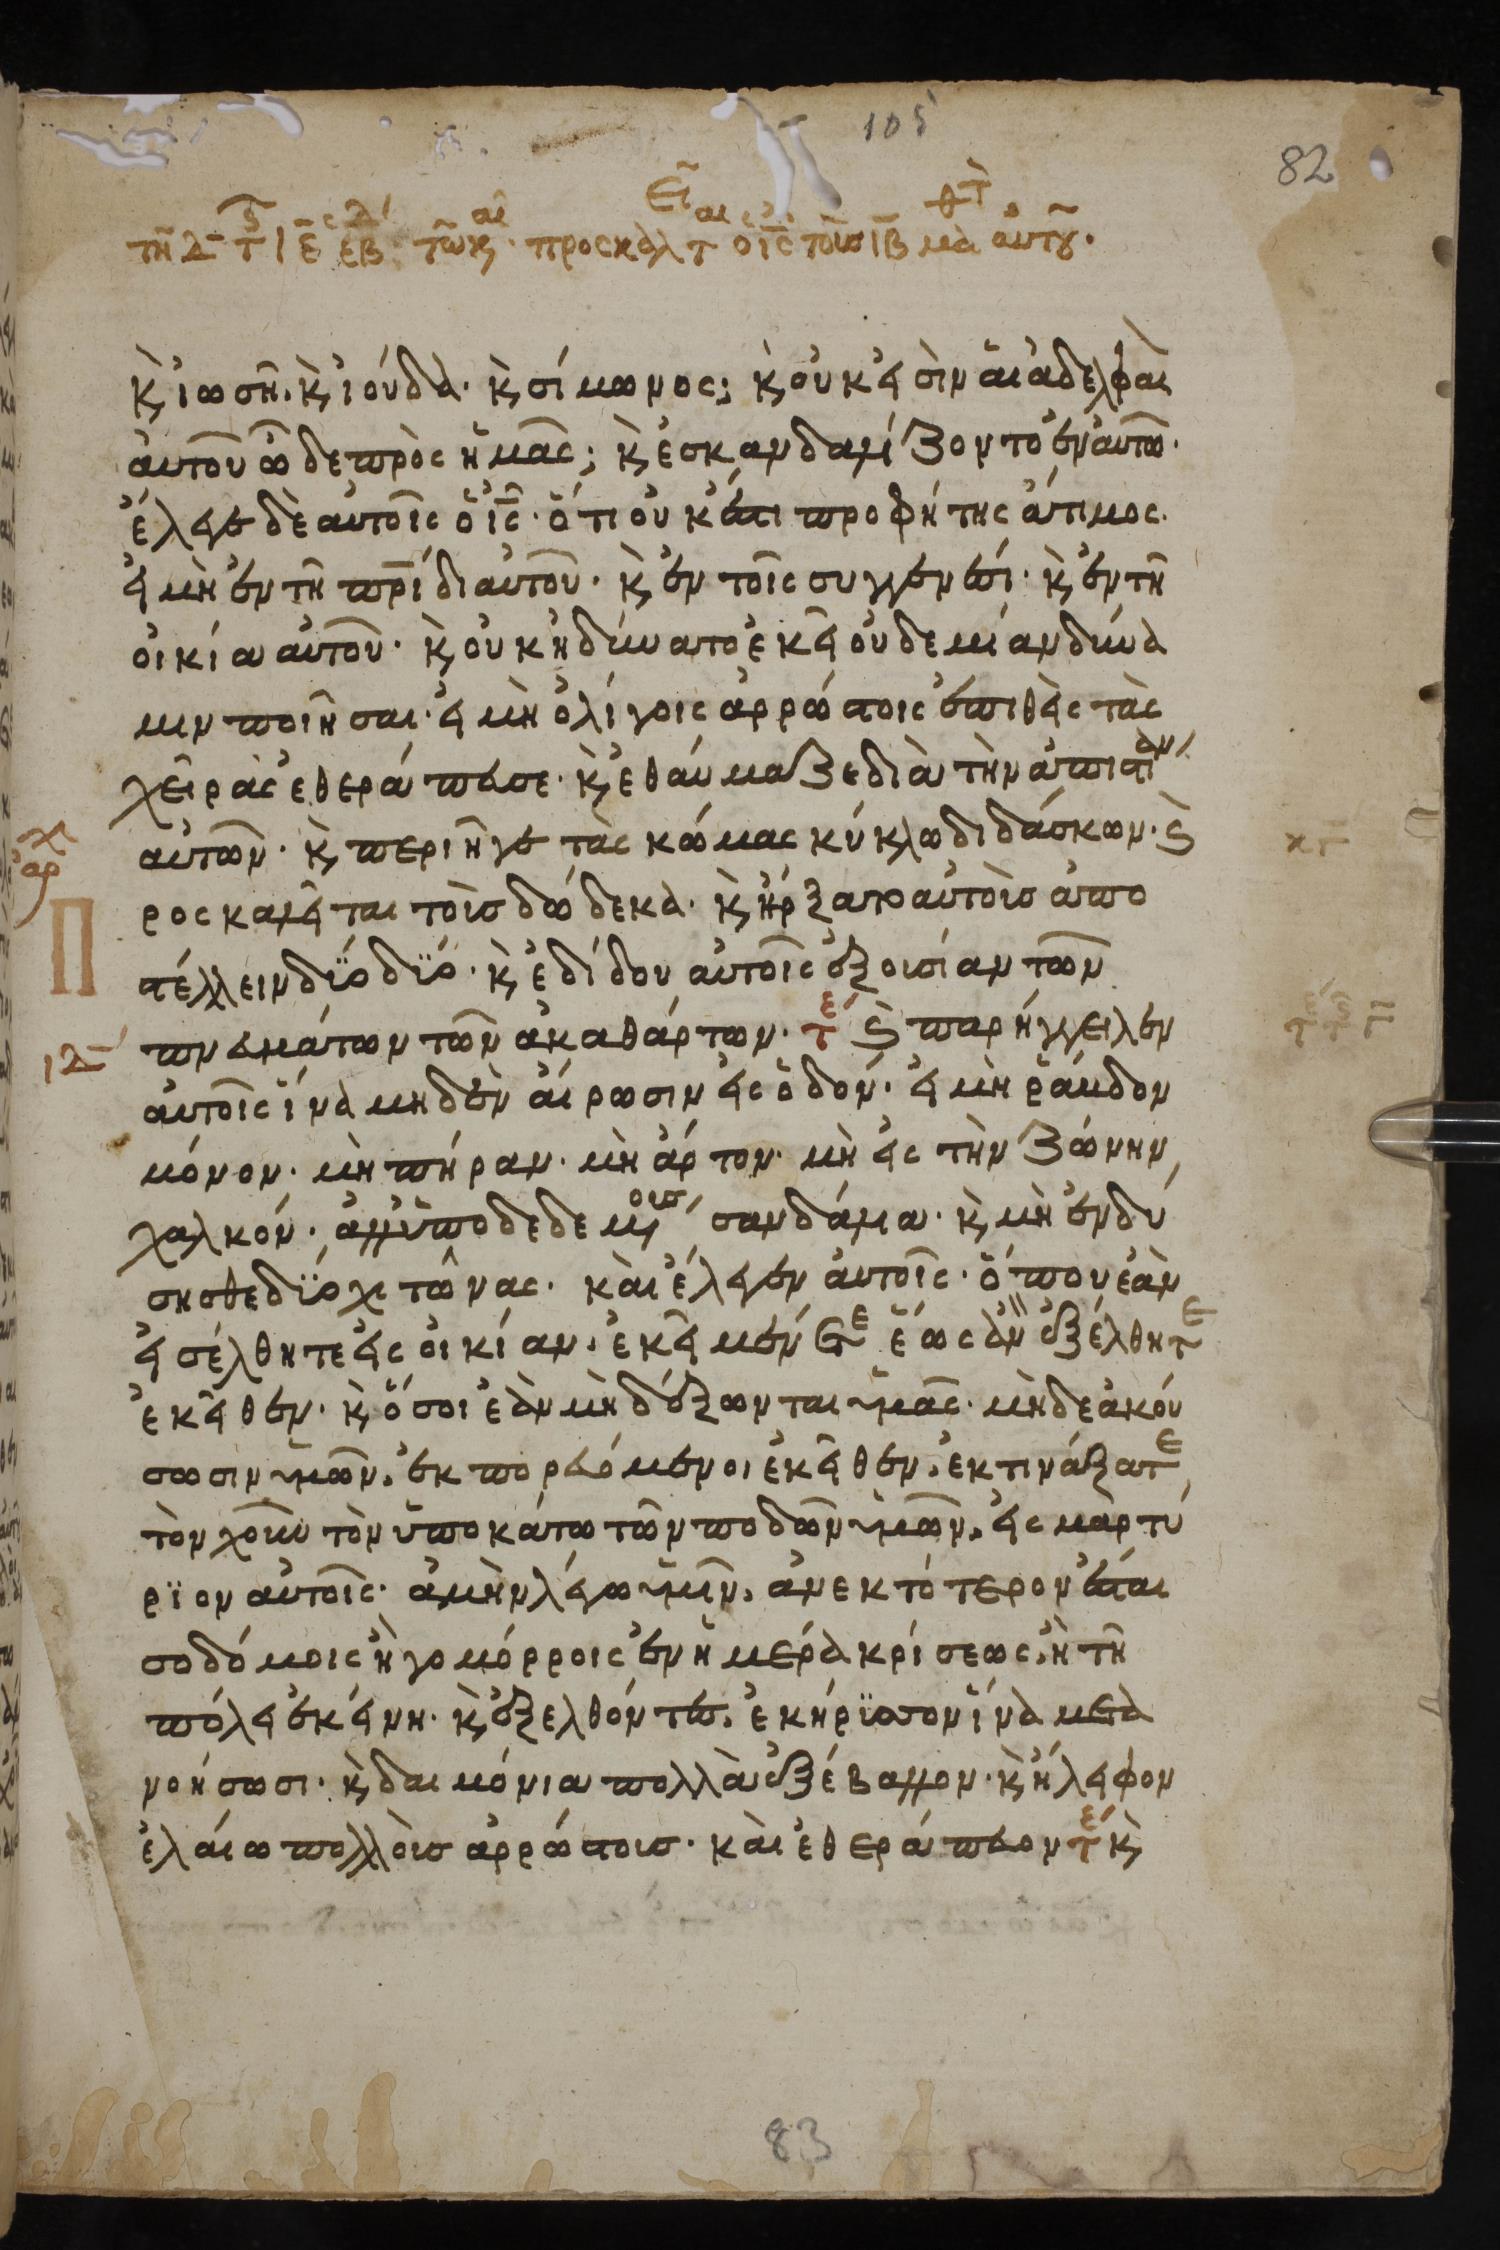 105
82
τῆ Δ τ ΙΕ ἑβ τῶ κ προσκαλτ ὁ ις τοὺσ ιβ μα αὐτου.
κ ἰωσῆ. κ ἰούδα. κ σίμωνος; κ οὐκ εἰσὶν αἱ ἀδελφαὶ
αὐτοῦ ὧδε πρὸς ἡμᾶς; κ ἐσκανδαλίζοντο ἐν αὐτῶ.
ἔλεγε δὲ αὐτοῖς ὁ ις. ὅτι οὐκ ἔστι προφήτης ἄτιμος.
εἰ μὴ ἐν τῆ πρίδι αὐτοῦ. κ ἐν τοῖς συγγενέσι. κ ἐν τῆ
οἰκία αὐτοῦ. κ οὐκ ἠδύνατο ἐκεῖ οὐδεμίαν δύνα
μιν ποιῆσαι. εἰ μὴ ὀλίγοις ἀρρώστοις ἐπιθεὶς τὰς
χεῖρας ἐθεράπευσε. κ ἐθαύμαζε διὰ τὴν ἀπιστίαν
αὐτῶν. κ περιῆγε τὰς κώμας κύκλω διδάσκων. κ
ρος καλεῖται τοὺσ δώδεκα. κ ἤρξατο αὐτοὺσ ἀπο
Π
στέλλειν δύο δύο. κ ἐδίδου αὐτοῖς ἐξουσίαν τῶν
ΙΔ
πνευμάτων τῶν ἀκαθάρτων. τε κ παρήγγειλεν
αὐτοῖς ἵνα μηδὲν αἴρωσιν εἰς ὁδόν. εἰ μὴ ῥάβδον
μόνον. μὴ πήραν. μὴ ἄρτον. μὴ εἰς τὴν ζώνην
χαλκόν. ἀλλ ὑποδεδεμένουσ σανδάλια. κ μὴ ἐνδύ
σησθε δύο χιτῶνας. καὶ ἔλεγεν αὐτοῖς. ὅπου ἐὰν
εἰσέλθητε εἰς οἰκίαν. ἐκεῖ μένετε ἕως ἂν ἐξέλθητε
ἐκεῖθεν. κ ὅσοι ἐὰν μὴ δέξωνται ὑμᾶς. μὴδε ἀκού
σωσιν ὑμῶν. ἐκπορευόμενοι ἐκεῖθεν. ἐκτινάξατε
τὸν χοῦν τὸν ὑποκάτω τῶν ποδῶν ὑμῶν. εἰς μαρτύ
ριον αὐτοῖς. ἀμὴν λέγω ὑμῖν. ἀνεκτότερον ἔσται
σοδόμοις ἢ γομόρροις ἐν ἡμέρα κρίσεως. ἢ τῆ
πόλει ἐκείνη. κ ἐξελθόντες. ἐκήρυσσον ἵνα μετα
νοήσωσι. κ δαιμόνια πολλὰ ἐξέβαλλον. κ ἤλειφον
ἐλαίω πολλοὺσ ἀρρώστουσ. καὶ ἐθεράπευον τε κ
83